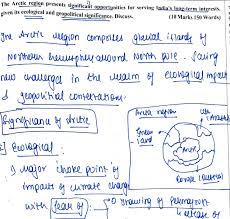 The Arctic region presents significant opportunities for serving India's long-term interests,
given its ecological and geopolitical significance. Discuss. (10 Marks 150 Words)
The Arctic region comprises glacial islands of
Northern hemisphere around North pole. Facing
new challenges in the realm of ecological impact
& geopolitical
Significance of Arctic
Arctic region
Ecological :
Green
land
Russia
major choke point of
impacts of climate change
with fear of :
permafrost
release of